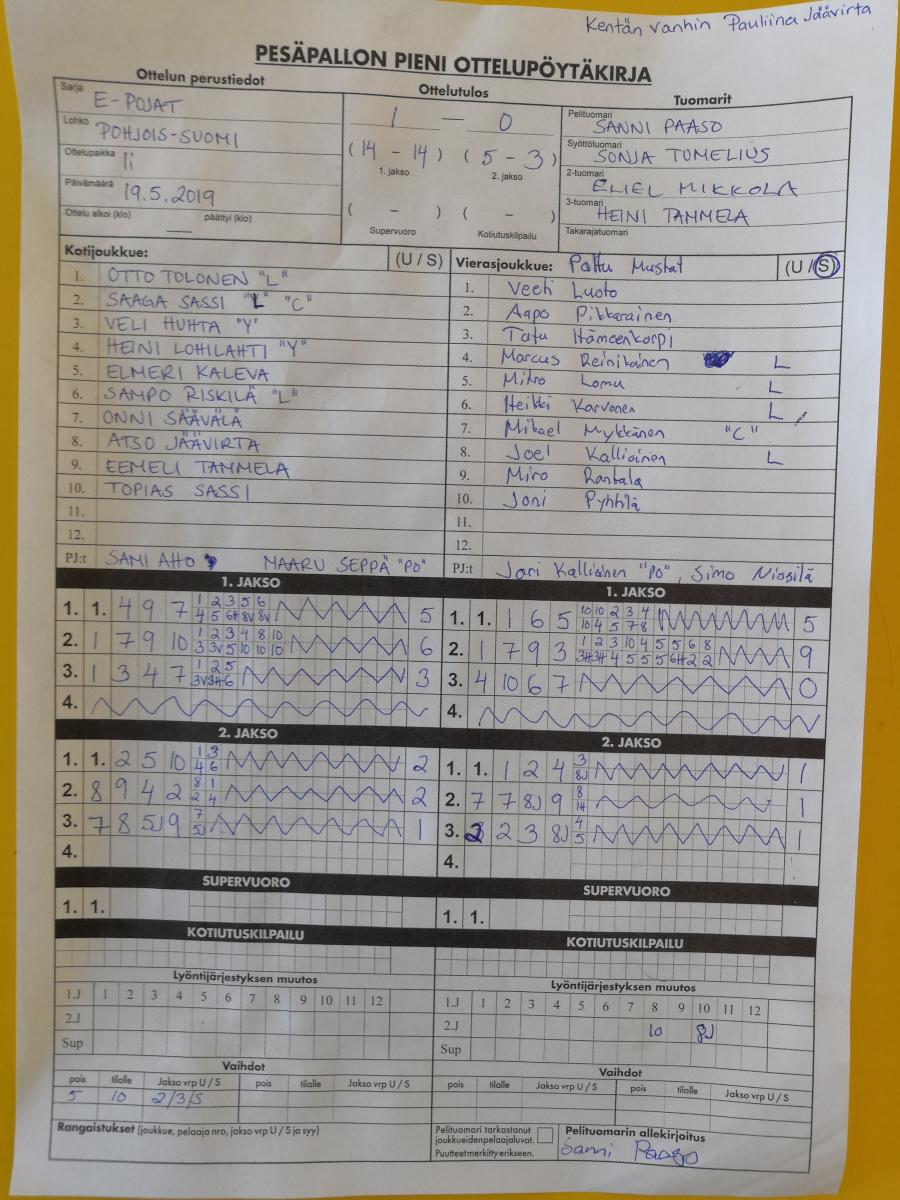 Kentän vanhin Pauliina Jäävirta
PESÄPALLON PIENI OTTELUPÖYTÄKIRJA
Ottelun perustiedot
Sarja E-POJAT
Lohko POHJOIS-SUOMI
Ottelupaikka Ii
Päivämäärä 19.5.2019
Ottelu alkoi (klo) — päättyi (klo)
Ottelutulos
1 — 0
(14 - 14) (5 - 3)
1. jakso 2. jakso
( - ) ( - )
Supervuoro Kotiutuskilpailu
Tuomarit
Pelituomari SANNI PAASO
Syöttötuomari SONJA TUMELIUS
2-tuomari ELIEL MIKKOLA
3-tuomari HEINI TAMMELA
Takarajatuomari
Kotijoukkue: (U / S)
1. OTTO TOLONEN "L"
2. SAAGA SASSI "L" "C"
3. VELI HUHTA "Y"
4. HEINI LOHILAHTI "Y"
5. ELMERI KALEVA
6. SAMPO RISKILÄ "L"
7. ONNI SÄÄVÄLÄ
8. ATSO JÄÄVIRTA
9. EEMELI TAMMELA
10. TOPIAS SASSI
11.
12.
PJ:t SAMI AHO MAARU SEPPÄ "PO"
Vierasjoukkue: Pattu Mustat (U / S)
1. Veeti Luoto
2. Aapo Pikkarainen
3. Tatu Hämeenkorpi
4. Marcus Reinikainen L
5. Mitro Lomu L
6. Heikki Karvonen L
7. Mikael Mykkänen "C"
8. Joel Kallioinen L
9. Miro Rantala
10. Joni Pyhtilä
11.
12.
PJ:t Jari Kallioinen "PO", Simo Niosilä
1. JAKSO
1. 1. 4 9 7 1 2 3 5 6 5
4 5 6H 8V 8V
2. 1 7 9 10 1 2 3 4 8 10 6
3 3V 5 10 10 10
3. 1 3 4 7 1 2 5 3
3V 3H 6
4.
1. JAKSO
1. 1. 1 6 5 10 10 2 3 4 5
10 4 5 7 8
2. 1 7 9 3 1 2 3 10 4 5 5 6 8 9
3H 3H 4 5 5 5 6H 2 2
3. 4 10 6 7 0
4.
2. JAKSO
1. 1. 2 5 10 1 3 2
4 6
2. 8 9 4 2 8 1 2
2 4
3. 7 8 5J 9 7 1
5J
4.
2. JAKSO
1. 1. 1 2 4 3 1
8J
2. 7 7 8J 9 8 1
1H
3. 2 2 3 8J 4 1
5
4.
SUPERVUORO
1. 1.
SUPERVUORO
1. 1.
KOTIUTUSKILPAILU
KOTIUTUSKILPAILU
Lyöntijärjestyksen muutos
1.J 1 2 3 4 5 6 7 8 9 10 11 12
2.J
Sup
Lyöntijärjestyksen muutos
1.J 1 2 3 4 5 6 7 8 9 10 11 12
2.J 10 8J
Sup
Vaihdot
pois tilalle Jakso vrp U / S pois tilalle Jakso vrp U / S
5 10 2/3/S
Vaihdot
pois tilalle Jakso vrp U / S pois tilalle Jakso vrp U / S
Rangaistukset (joukkue, pelaaja nro, jakso vrp U / S ja syy)
Pelituomari tarkastanut
joukkueidenpelaajaluvat.
Puutteet merkitty erikseen.
Pelituomarin allekirjoitus
Sanni Paaso